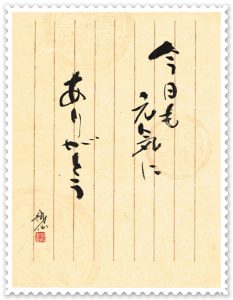 今日も
元気に
ありがとう